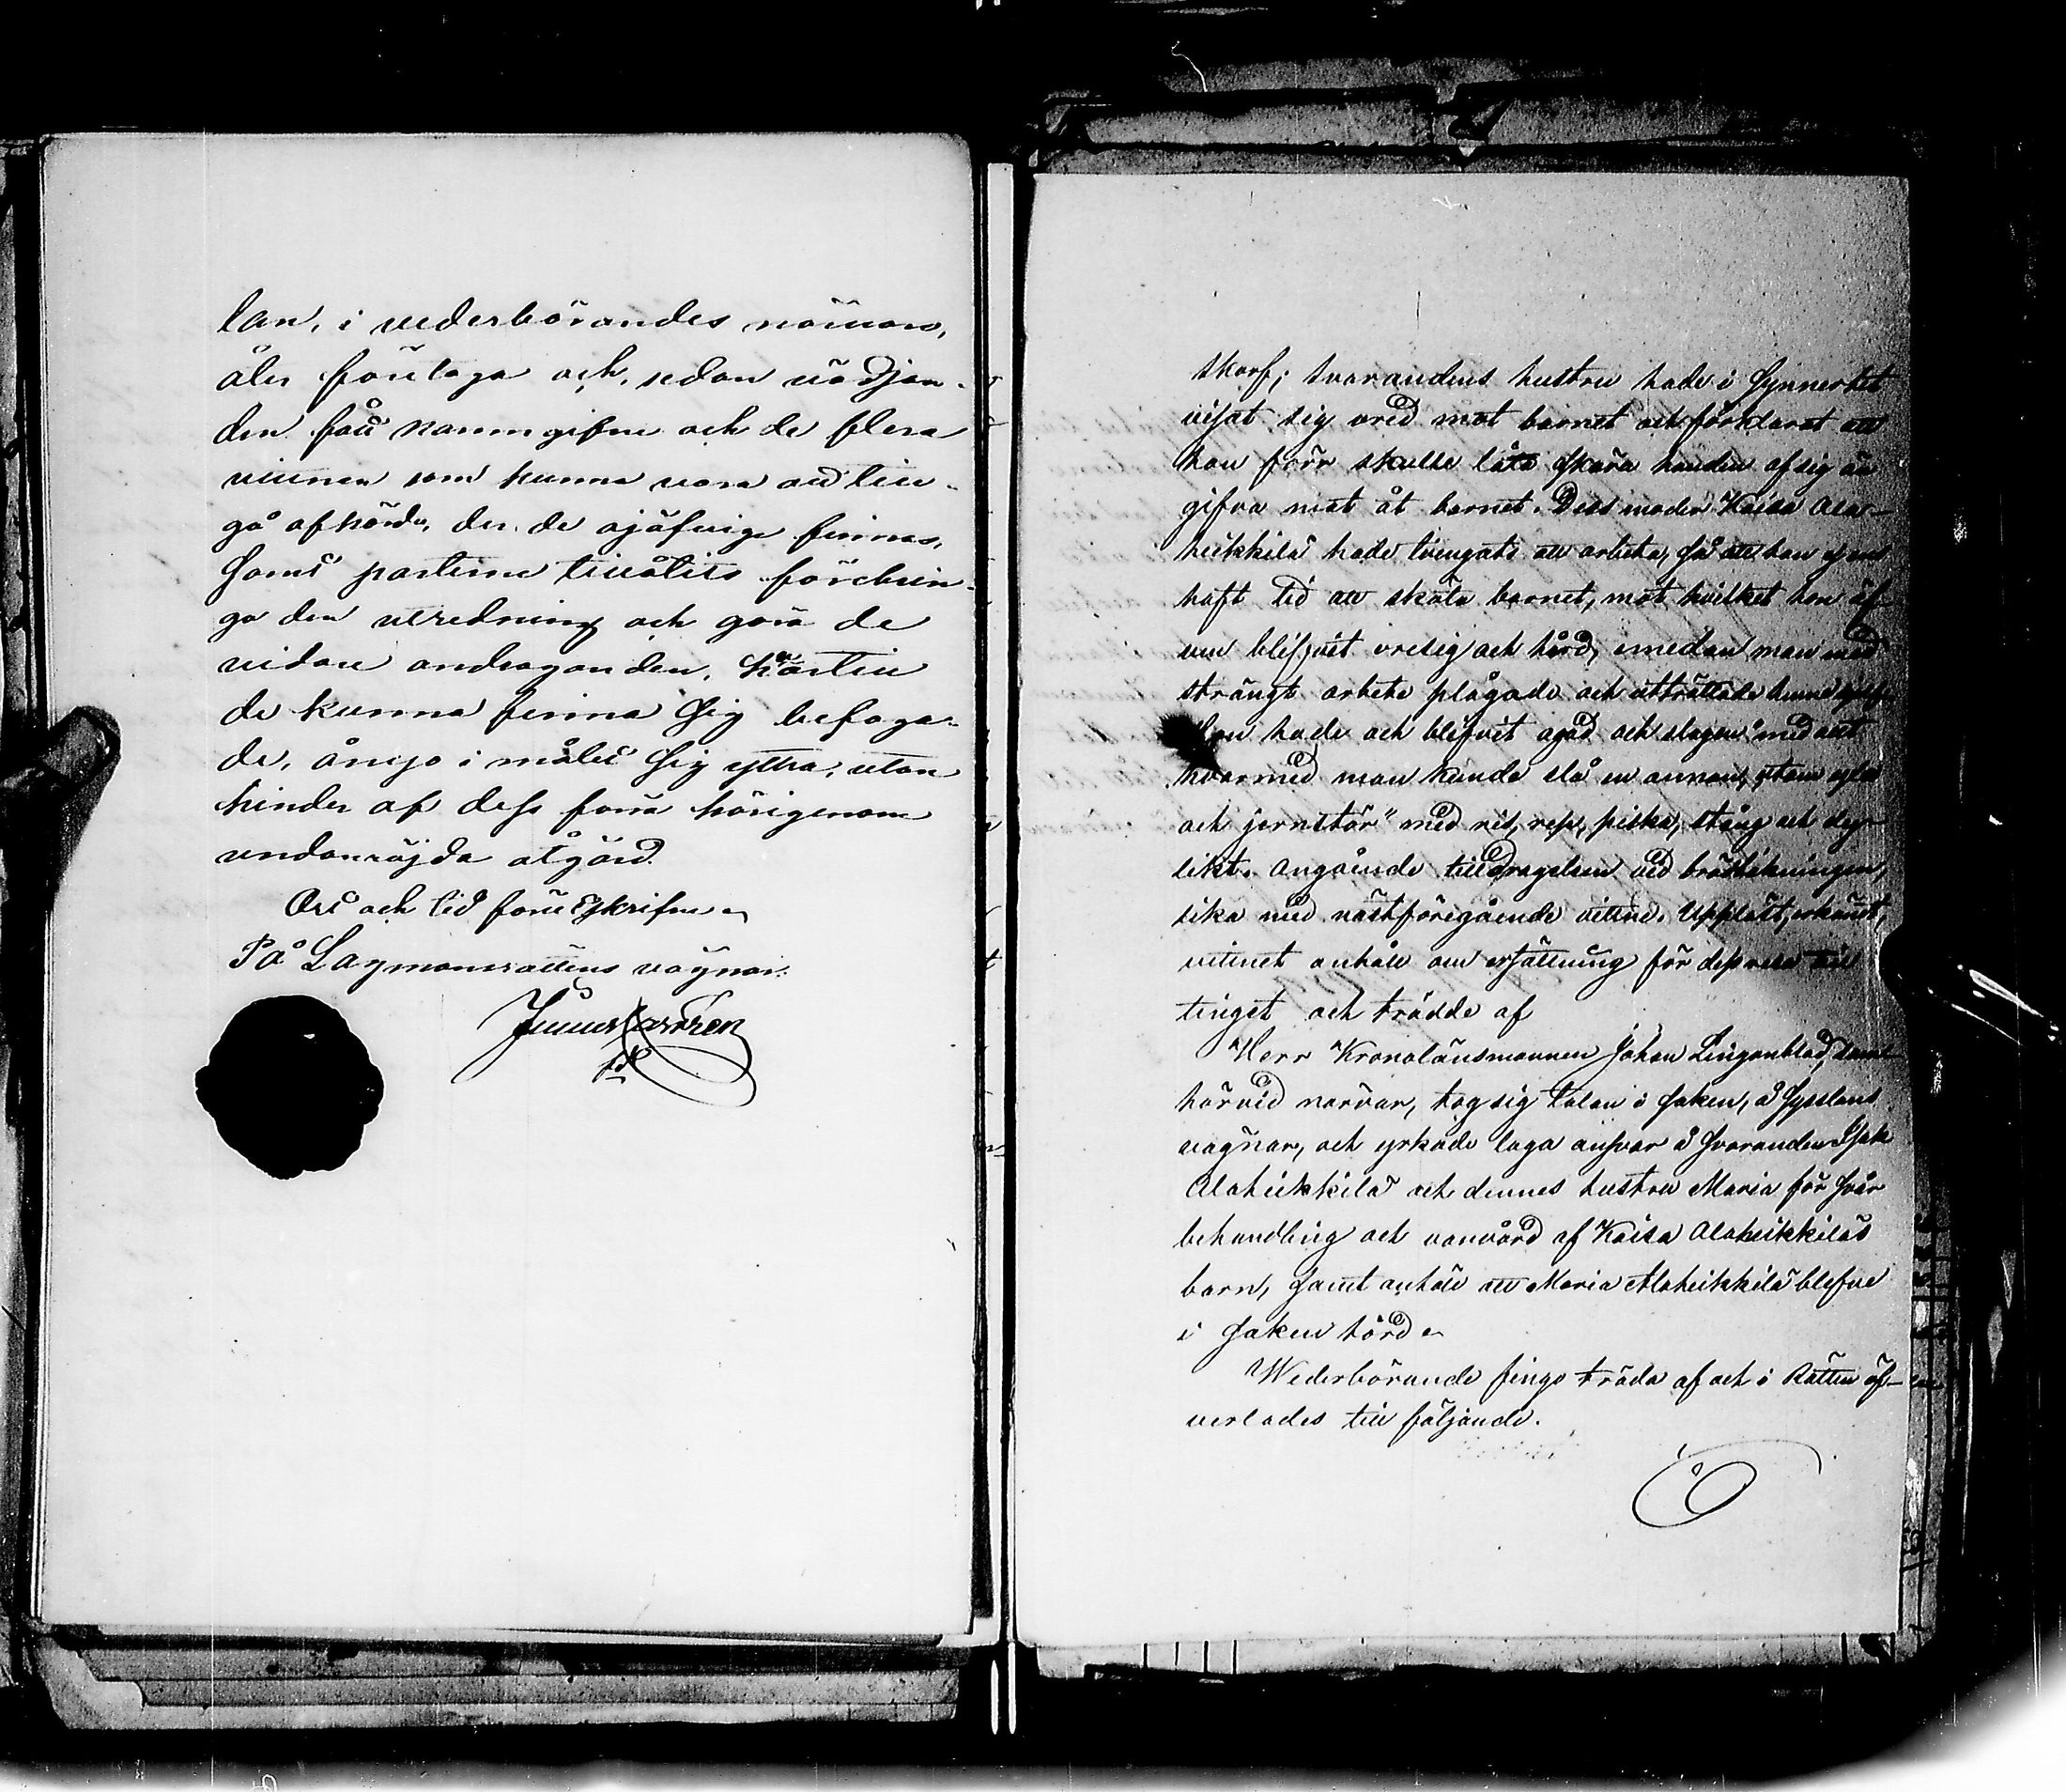 lan, i vederbörandes närvaro,
åter företaga och, sedan vädjan-
den fått namngifne och de flera
vitnen som kunna vara att till-
gå afhörda, der de ojäfvige finnas,
samt parterne tillåtits förebrin-
ga den utredning och göra de
vidare andraganden, härtill
de kunna finna sig befoga-
de, ånyo i målet sig yttra, utan
hinder af dess förra härigenom
undanröjda åtgärd.
Ort och tid förut skrifne
På Lagmansrättens vägnar:
skorf; svarandens hustru hade i synnerhet
visat sig vred mot barnet och förklarat att
hon förr skulle låta skära handen af sig än
gifva mat åt barnet. Dess moder Kaisa Ala-
heikkilä hade tvungits att arbeta, så att hon ej ens
haft tid att sköta barnet, mot hvilket hon äf-
ven blifvit vresig och hård, emedan man med
strängt arbete plågade och uttröttade henne
Hon hade och blifvit agad och slagen "med allt
hvarmed man kunde slå en annan, utom yxa
och jernstör" med ris, rep, piska, stång och dy-
likt. Angående tilldragelsen vid
lika med nästföregående vittne. Uppläst, erkändt,
vittnet anhöll om ersättning för dess resa till
tinget och trädde af
Herr Kronolänsmannen Johan Lingonblad, som
härvid narvar, tog sig talan i saken, å sysslans
vägnar, och yrkade laga ansvar å svaranden Isak
Alaheikkilä och dennes hustru Maria för svår
behandling och vanvård af Kaisa Alaheikkiläs
barn, samt anhöll att Maria Alaheikkilä blefve
i saken hörd
Wederbörande fingo träda af och i Rätten öf-
verlades till följande.